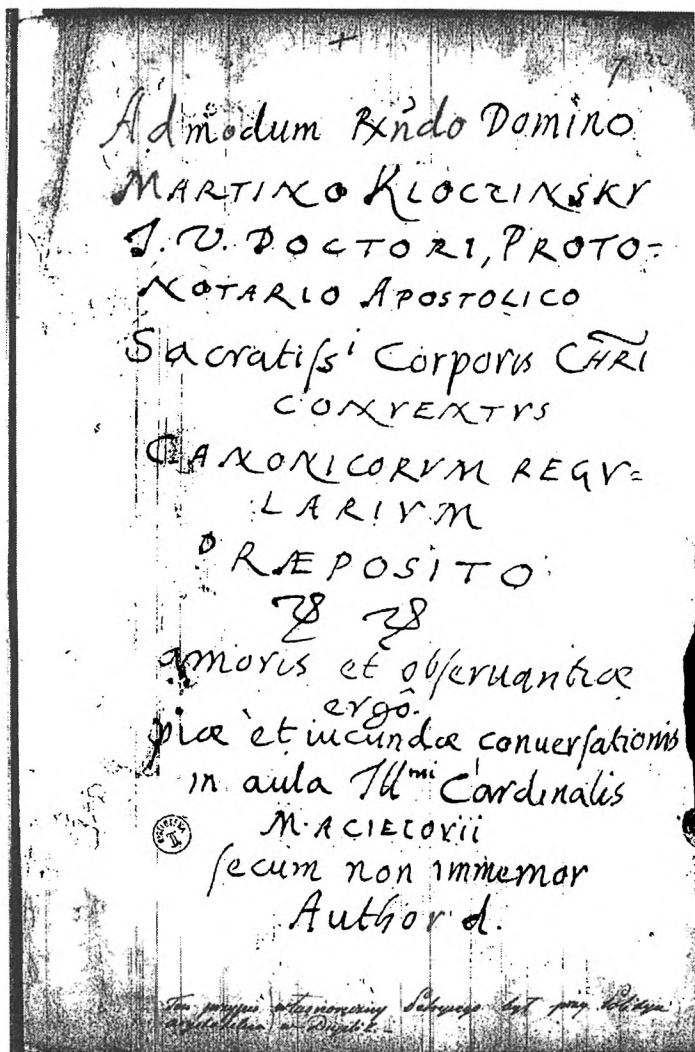 Admodum Rxndo Domino
MARTINO KLOCZINSKY
J. V. DOCTORI, PROTO-
NOTARIO APOSTOLICO
Sacratiſsi Corporis CHRI
CONVENTVS
CANONICORVM REGV=
LARIVM
PRÆPOSITO
amoris et obſeruantiæ
ergô.
piæ et iucundæ conuerſationis
in aula Illmi Cardinalis
MACIEIOVII
ſecum non immemor
Author d.
Ten przypis